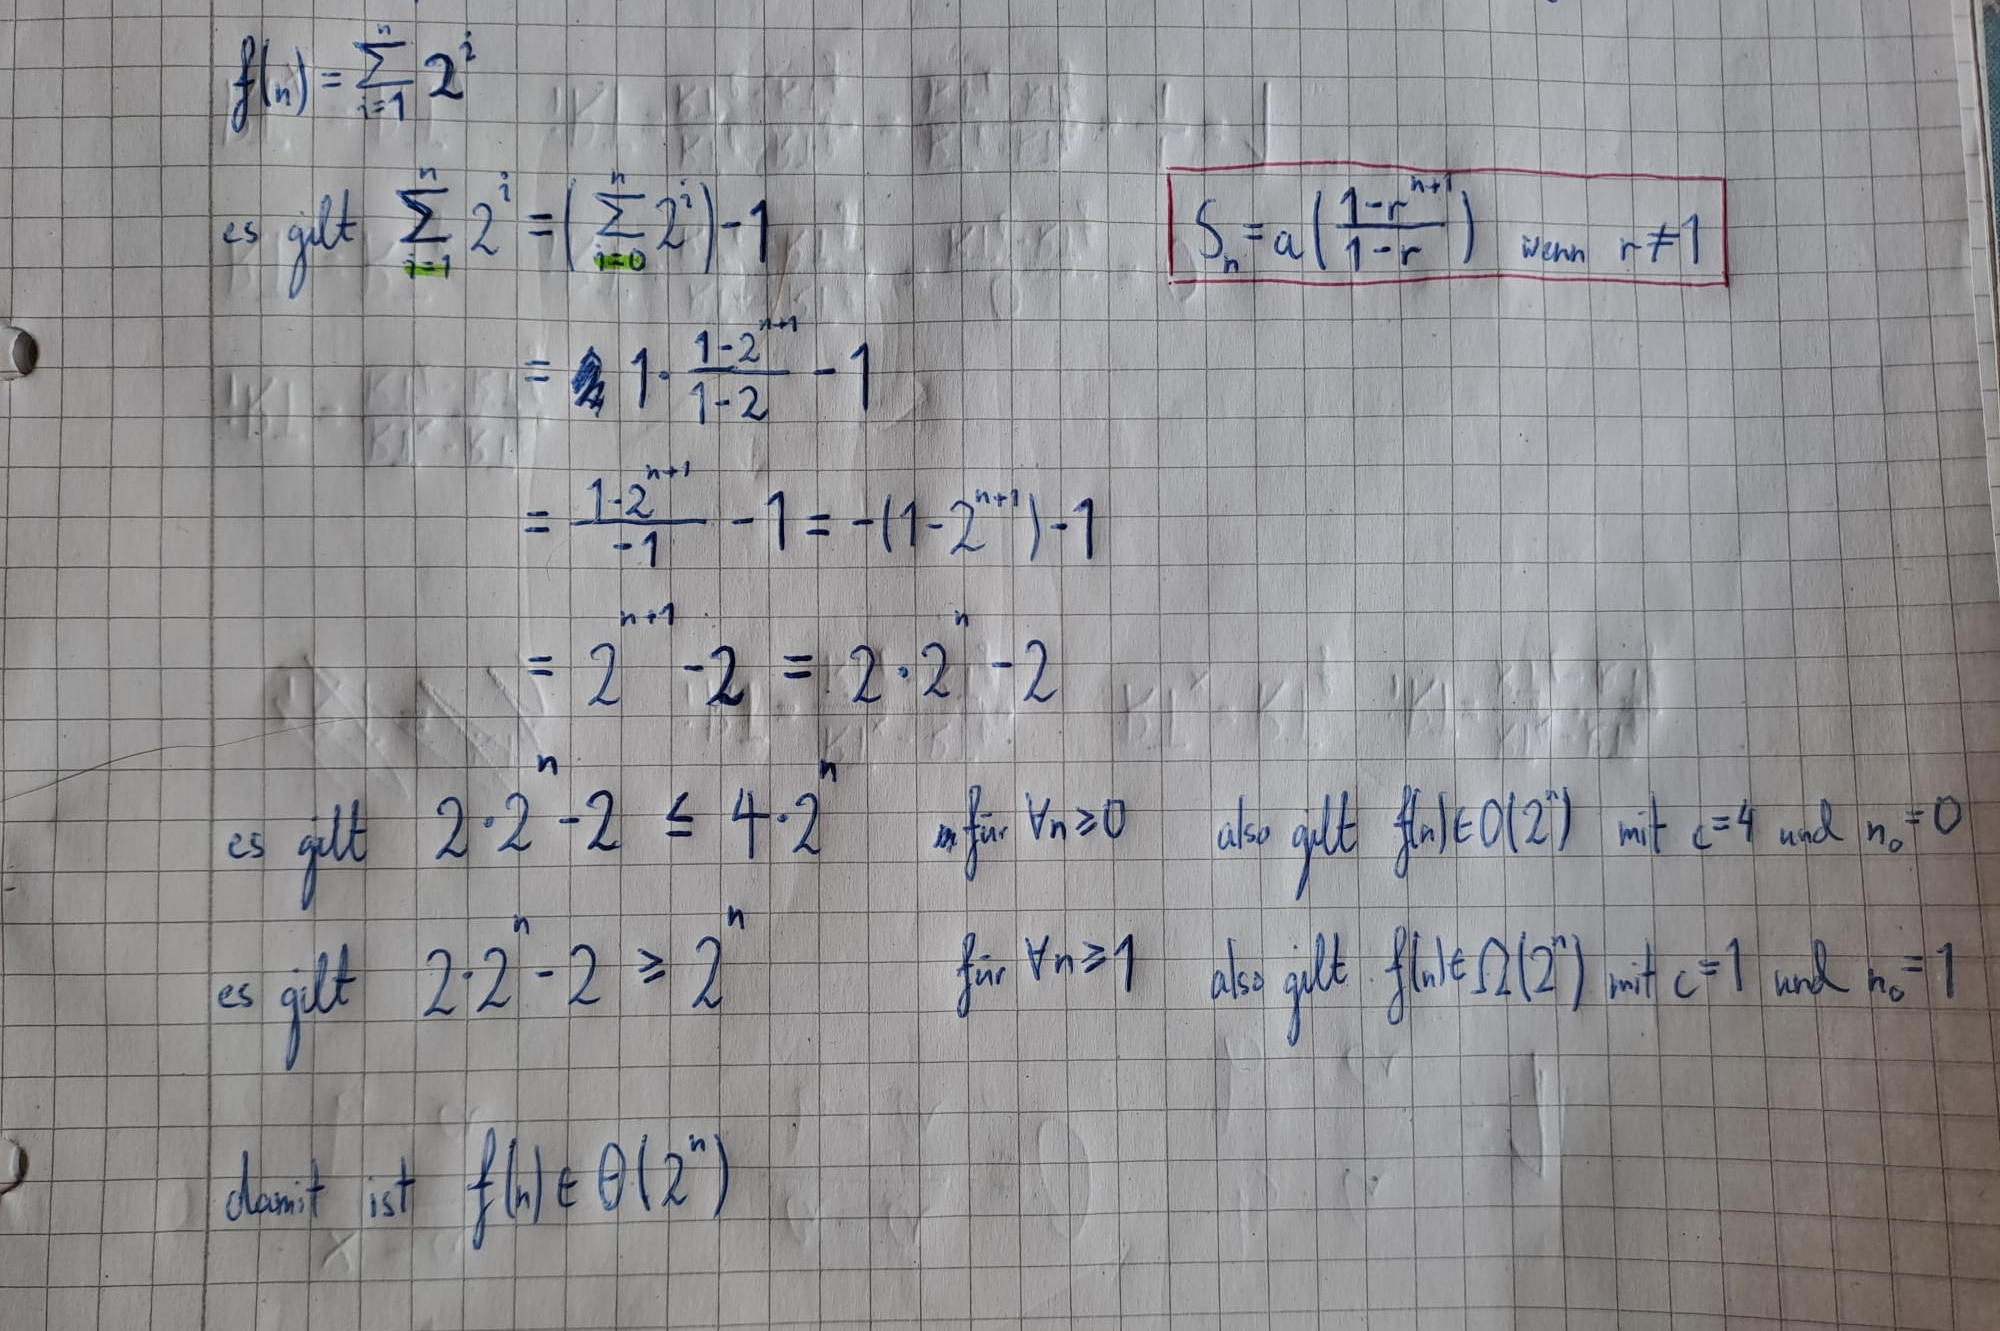 f(n) = ∑_{i=1}^{n} 2^i
es gilt ∑_{i=1}^{n} 2^i = (∑_{i=0}^{n} 2^i) - 1
S_n = a((1-r^{n+1})/(1-r)) wenn r ≠ 1
= 1 · (1-2^{n+1})/(1-2) - 1
= (1-2^{n+1})/(-1) - 1 = -(1-2^{n+1}) - 1
= 2^{n+1} - 2 = 2·2^n - 2
es gilt 2·2^n - 2 ≤ 4·2^n für ∀n ≥ 0 also gilt f(n) ∈ O(2^n) mit c=4 und n_0=0
es gilt 2·2^n - 2 ≥ 2^n für ∀n ≥ 1 also gilt f(n) ∈ Ω(2^n) mit c=1 und n_0=1
damit ist f(n) ∈ θ(2^n)